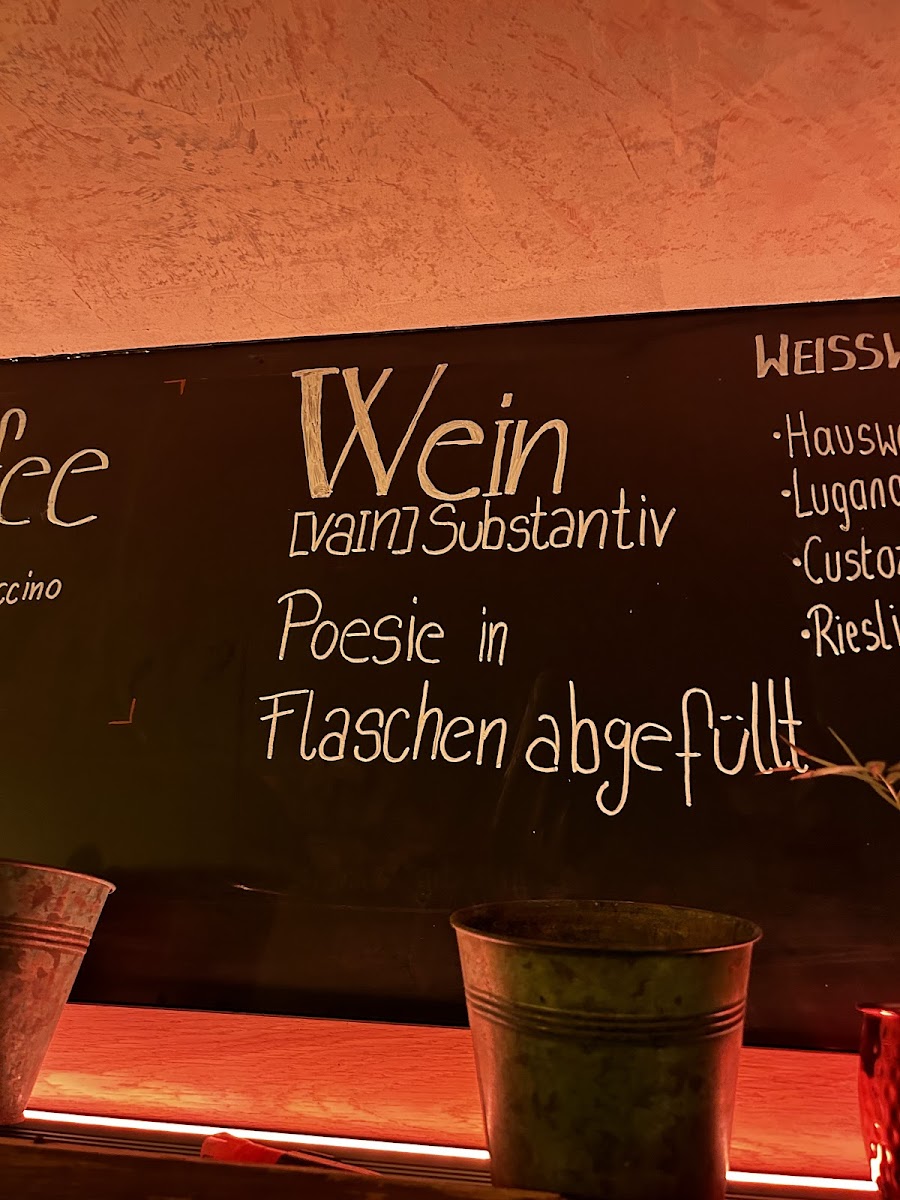 fee
ccino
Wein
[vaIn] Substantiv
Poesie in
Flaschen abgefüllt
WEISSW
·Hausw
·Lugana
·Custoz
·Riesli